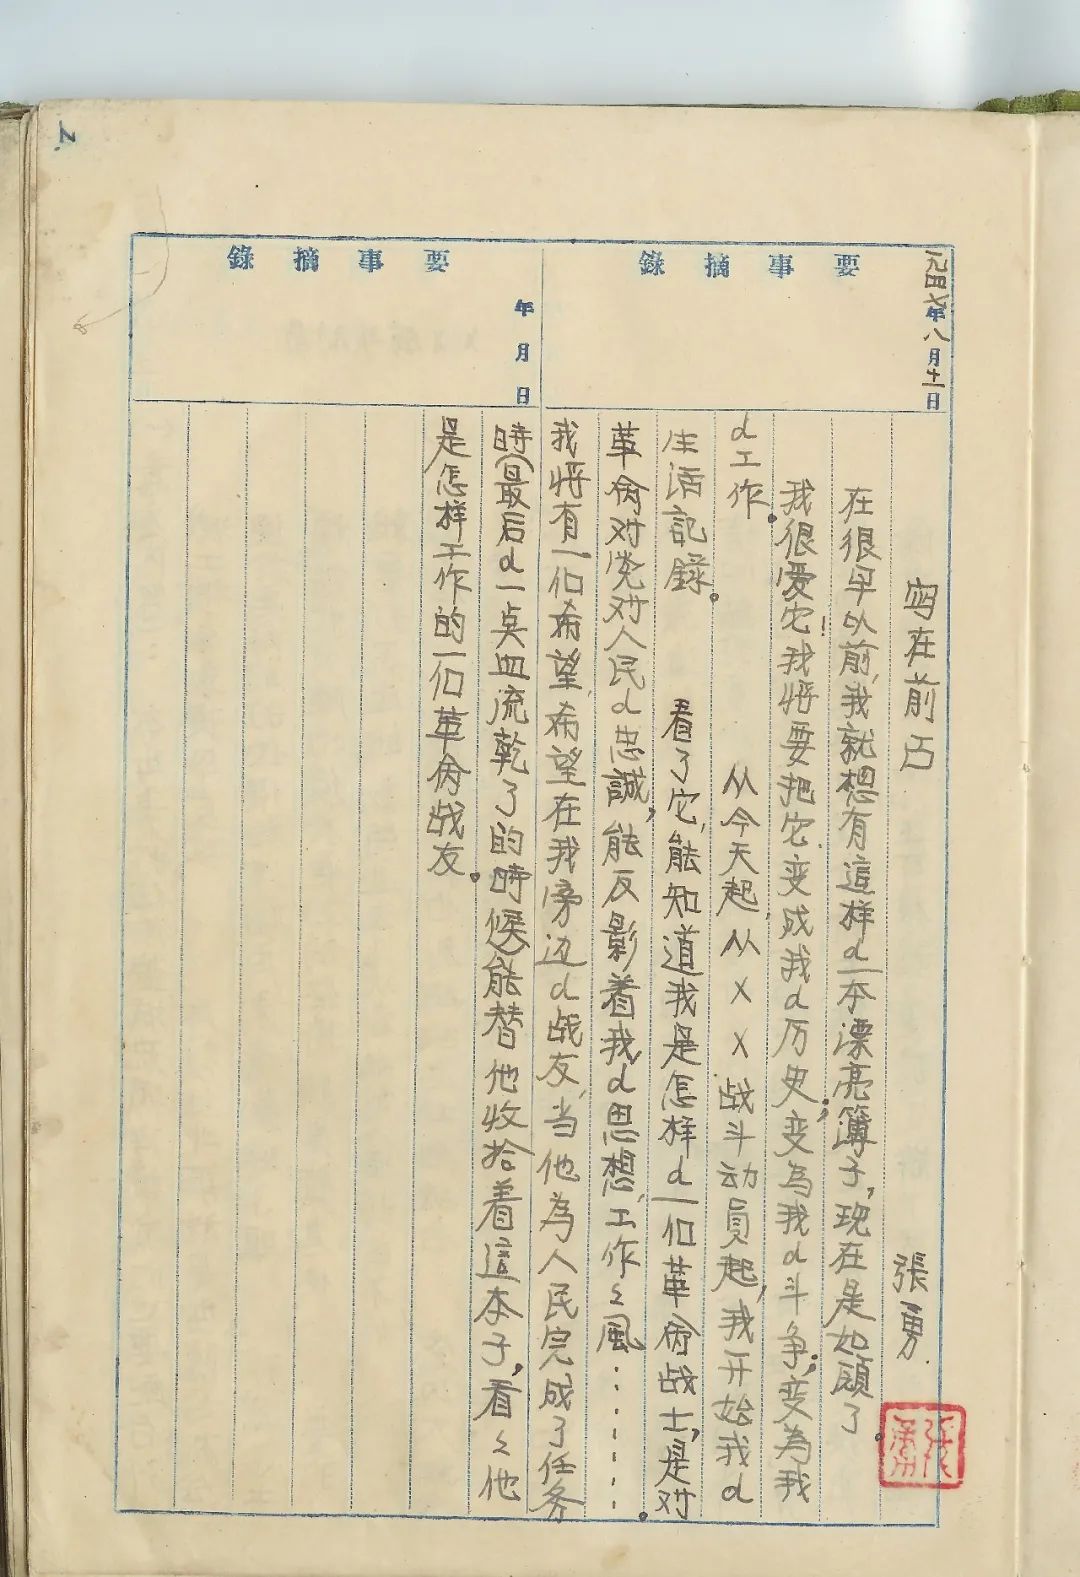 要事摘錄
一九四七年八月十一日
写在前面 張勇.
張勇
在很早以前,我就想有這样d一本漂亮簿子,现在是如願了。
我很爱它!我将要把它变成我d历史;变為我d斗争;变為我
d工作。 从今天起,从××战斗动員起,我开始我d
生活記錄。 看了它,能知道我是怎样d一们革命战士,是对
革命对党对人民d忠誠,能反影着我d思想,工作々風………。
要事摘錄
年月日
我将有一们希望,希望在我旁边d战友,当他為人民完成了任务
時(最后d一点血流乾了的時候)能替他收拾着這本子,看々他
是怎样工作的一们革命战友。